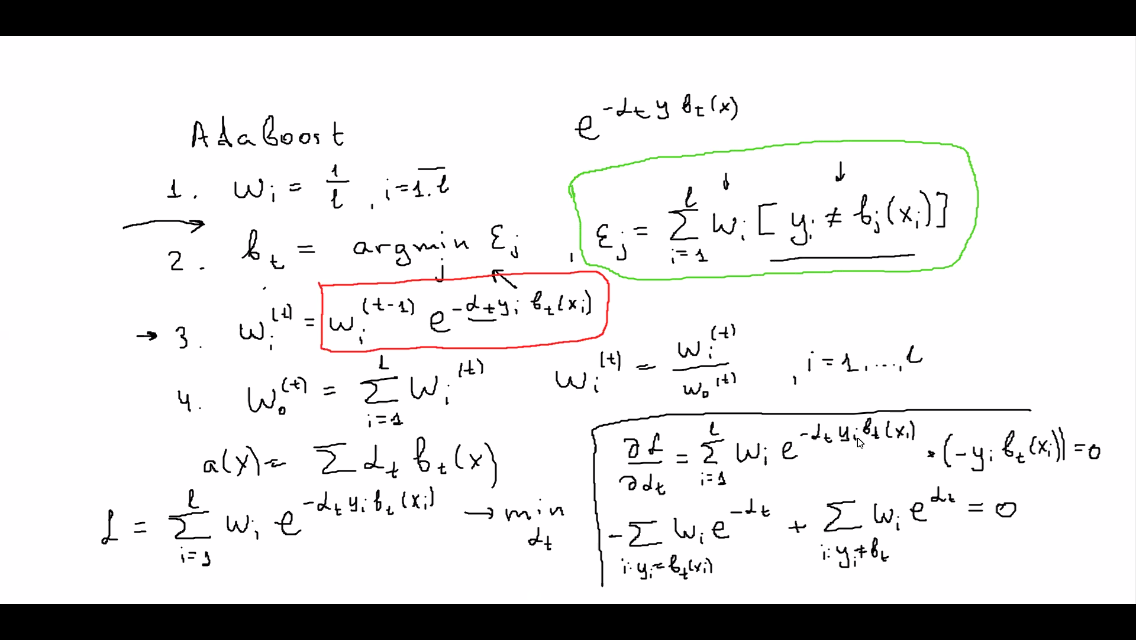 Adaboost
e^{-α_t y b_t(x)}
1. w_i = 1/l , i=1,l
2. b_t = argmin_j ε_j , ε_j = Σ_{i=1}^{l} w_i [ y_i ≠ b_j(x_i) ]
3. w_i^{(t)} = w_i^{(t-1)} e^{-α_t y_i b_t(x_i)}
4. w_0^{(t)} = Σ_{i=1}^{l} w_i^{(t)} w_i^{(t)} = w_i^{(t)} / w_0^{(t)} , i=1,...,l
a(x) = Σ α_t b_t(x)
L = Σ_{i=1}^{l} w_i e^{-α_t y_i b_t(x_i)} → min_{α_t}
∂L/∂α_t = Σ_{i=1}^{l} w_i e^{-α_t y_i b_t(x_i)} · (-y_i b_t(x_i)) = 0
-Σ_{i: y_i = b_t(x_i)} w_i e^{-α_t} + Σ_{i: y_i ≠ b_t} w_i e^{α_t} = 0